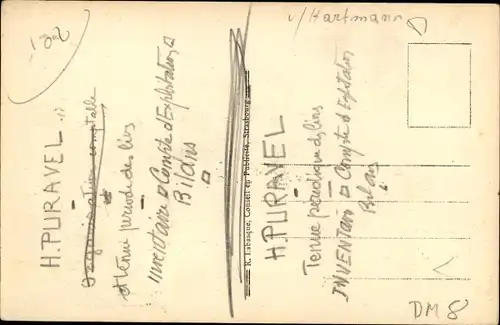 102
v/Hartmann
H. PURAVEL
Organisation comptable
et tenue périodique des livres
Inventaire Compte d'Exploitation
Bilans
R. Labasque, Conseil en Publicité, Strasbourg
H. PURAVEL
Tenue périodique des livres
INVENTaire Compte d'Exploitation
Bilans
DM 8